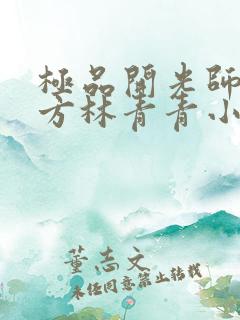 極品開光師
方林青青小
董志文
未经同意禁止转载